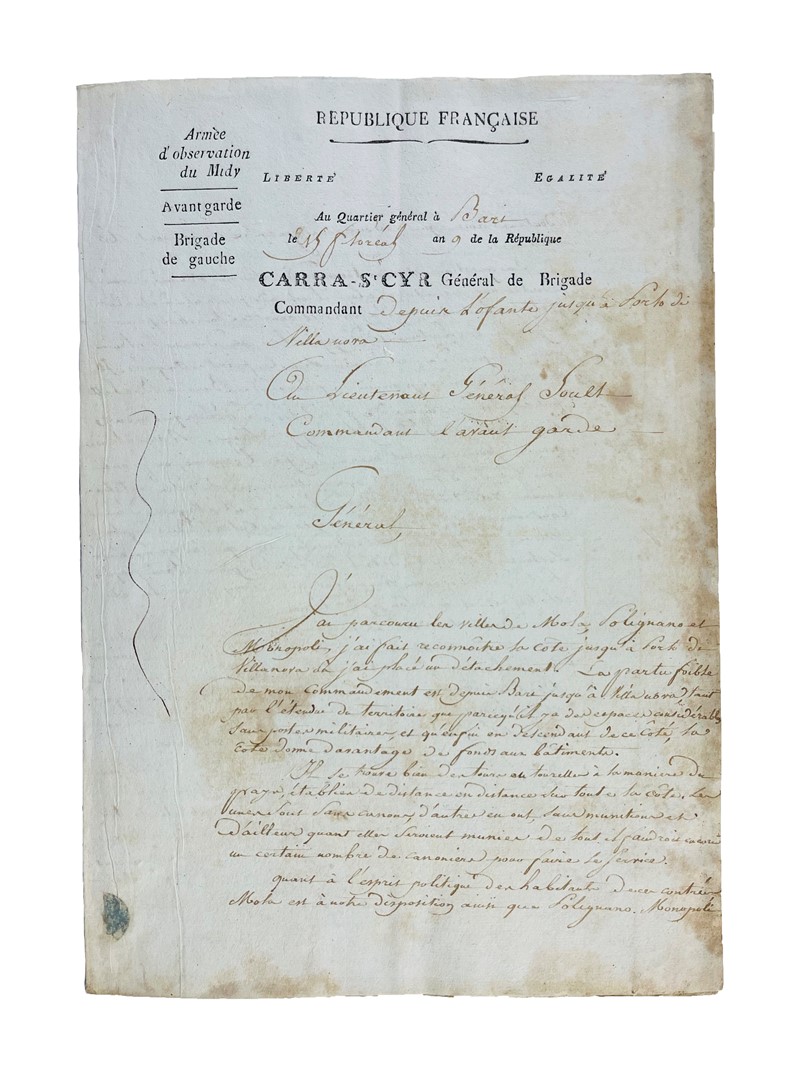 REPUBLIQUE FRANÇAISE
Armèe
d'observation
du Mıdy
Avant garde
Brigade
de gauche
LIBERTÉ EGALITÉ
Au Quartier général à Bari
le 15 floréal an 9 de la République
CARRA-St CYR Général de Brigade
Commandant depuis L'ofante jusqu'à Porto di
Villanova
Au Lieutenant Général Soult
Commandant l'avant garde
Général,
J'ai parcouru les villes de Mola, Polignano et
Monopoli, j'ai fait reconnoître la côte jusqu'à Porto di
Villanova où j'ai placé un détachement. La partie foible
de mon commandement est depuis Bari jusqu'à Villanova tant
par l'étendue de territoire que parcequ'il y a des espaces considérables
sans postes militaires, et qu'enfin en descendant de ce côté, la
côte donne davantage de fond aux bâtimens.
Il se trouve bien des tours ou tourelles à la manière du
pays, établies de distance en distance sur toute la côte. Les
unes sont sans canons, d'autres en ont sans munitions et
d'ailleur quant elles seroient munies de tout il faudroit encore
un certain nombre de canoniers pour faire le service.
quant à l'esprit politique des habitants de ces contrées
Mola est à notre disposition ainsi que Polignano. Monopoli